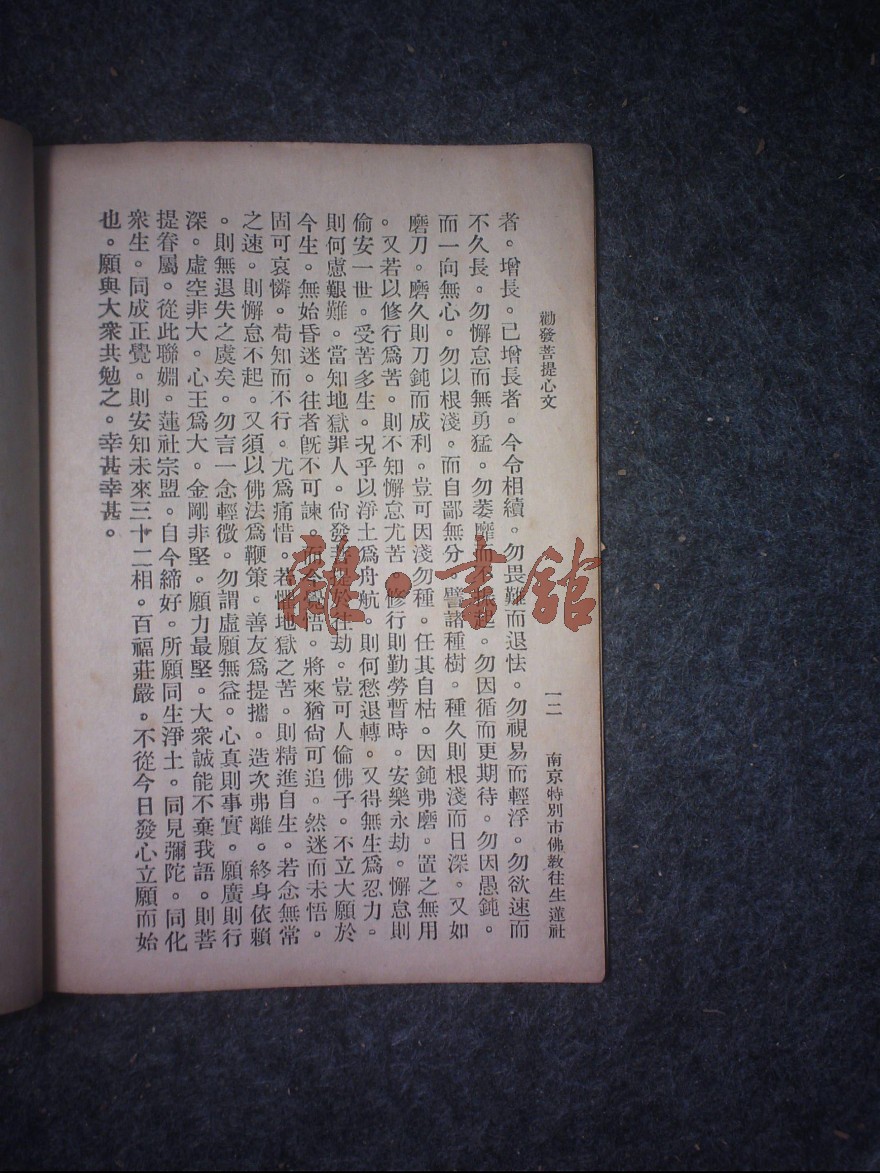 勸發菩提心文
一二
南京特別市佛教往生蓮社
者。增長。已增長者。今令相續。勿畏難而退怯。勿視易而輕浮。勿欲速而
不久長。勿懈怠而無勇猛。勿萎靡而不振起。勿因循而更期待。勿因愚鈍。
而一向無心。勿以根淺。而自鄙無分。譬諸種樹。種久則根淺而日深。又如
磨刀。磨久則刀鈍而成利。豈可因淺勿種。任其自枯。因鈍弗磨。置之無用
。又若以修行爲苦。則不知懈怠尤苦。修行則勤勞暫時。安樂永劫。懈怠則
偷安一世。受苦多生。况乎以淨土爲舟航。則何愁退轉。又得無生爲忍力。
則何慮艱難。當知地獄罪人。尙發菩提於往劫。豈可人倫佛子。不立大願於
今生。無始昏迷。往者旣不可諫。而今覺悟。將來猶尙可追。然迷而未悟。
固可哀憐。苟知而不行。尤爲痛惜。若懼地獄之苦。則精進自生。若念無常
之速。則懈怠不起。又須以佛法爲鞭策。善友爲提攜。造次弗離。終身依賴
。則無退失之虞矣。勿言一念輕微。勿謂虛願無益。心真則事實。願廣則行
深。虛空非大。心王爲大。金剛非堅。願力最堅。大衆誠能不棄我語。則菩
提眷屬。從此聯姻。蓮社宗盟。自今締好。所願同生淨土。同見彌陀。同化
衆生。同成正覺。則安知未來三十二相。百福莊嚴。不從今日發心立願而始
也。願與大衆共勉之。幸甚幸甚。
龍·書舘